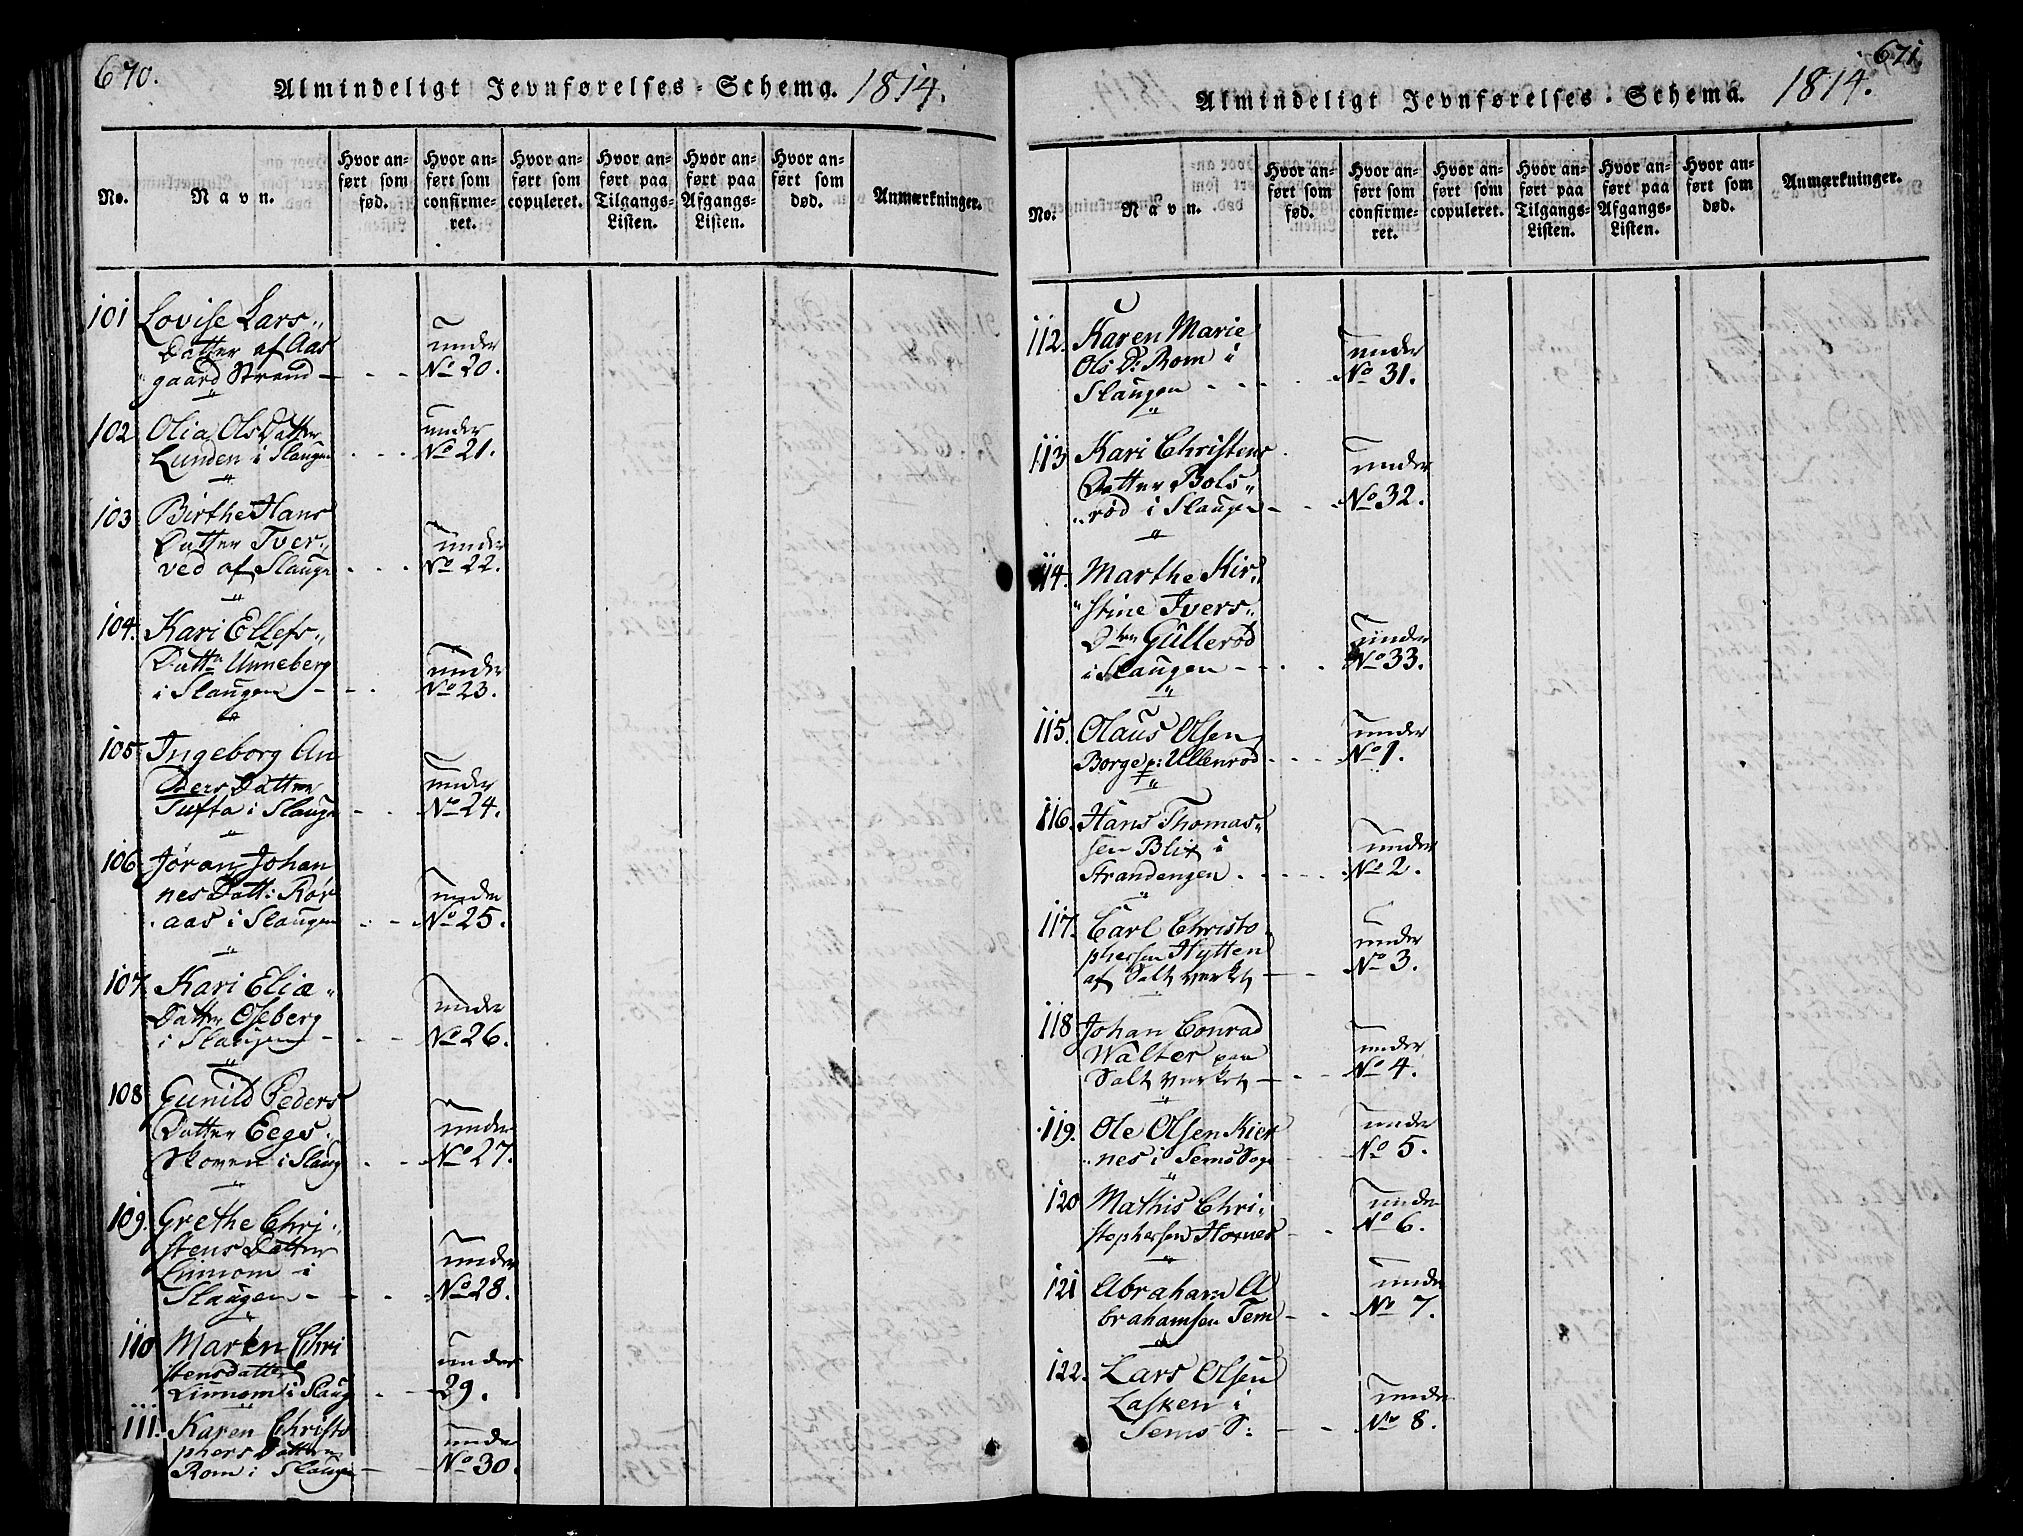 670.
Almindeligt Jevnførelses-Schema. 1814.
No.
Navn.
Hvor an-
ført som
fød.
Hvor an-
ført som
confirme-
ret.
Hvor an-
ført som
copuleret.
Hvor an-
ført paa
Tilgangs-
Listen.
Hvor an-
ført paa
Afgangs-
Listen.
Hvor an-
ført som
død.
Anmærkninger.
101 Lovise Lars„
Datter af Aas
gaard Strand — - - under No 20.
102 Olia Ols Datter
Lunden i Slaugen - - - under No 21.
103 Birthe Hans
Datter Tver„
ved af Slaugn - - - under No 22.
104. Kari Ellefs„
Datter Unneberg
i Slaugen - - - under No 23.
105. Ingeborg An
ders Datter
Tufta i Slaugn - - - under No 24.
106. Jøran Johan
nes Datt: Rør
aas i Slaugen - - under No 25.
107. Kari Eliæ„
Datter Oseberg
i Slaugen - - - under No 26.
108 Gunild Peders
Datter Eegs„
Skoven i Slaug - - under No 27.
109. Grethe Chri„
stens Datter
Linnom i
Slaugen - - - under No 28.
110 Maren Chri
stensdatter
Linnom i Slaug - - under 29.
111. Karen Christo
phers Datter
Rom i Slaugn — - under No 30.
671.
Almindeligt Jevnførelses-Schema. 1814.
No.
Navn.
Hvor an-
ført som
fød.
Hvor an-
ført som
confirme-
ret.
Hvor an-
ført som
copuleret.
Hvor an-
ført paa
Tilgangs-
Listen.
Hvor an-
ført paa
Afgangs-
Listen.
Hvor an-
ført som
død.
Anmærkninger.
112. Karen Marie
Ols D: Rom i
Slaugen - - - - under No 31.
113 Kari Christens
Datter Bols„
„rød i Slaugen - - - under No 32.
114. Marthe Kir„
„stine Ivers„
Dtr Gullerød
i Slaugen - - - under No 33.
115. Olaus Olsen
Borge p: Ullenrød - - - under No 1.
116. Hans Thomas„
sen Blix i
Strandengen - - - - under No 2.
117. Carl Christo„
phersen Hytten
af Saltverket — - - under No 3.
118 Johan Conrad
Walter paa
Saltverket — - - under No 4.
119. Ole Olsen Kier
„nes i Sems Sogn - - under No 5.
120 Mathis Chri„
stophersen Hornes - - under No 6.
121 Abraham A
brahamsen Tem - - under No 7.
122. Lars Olsen
Lasken i
Sems S: - - under No 8.